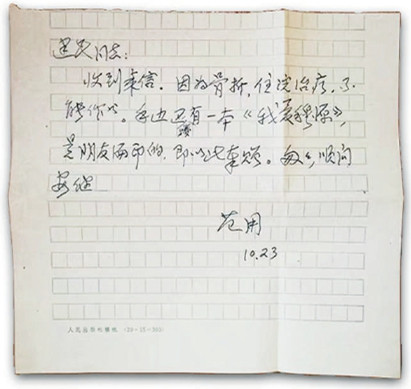 民同志：
收到来信。因为骨折，住院治疗，不
能作。手边还有一本《我爱穆源》，
是朋友印的，即以此奉。匆匆，顺问
安健
范用
10.23
人民出版社稿纸 (20×15=300)